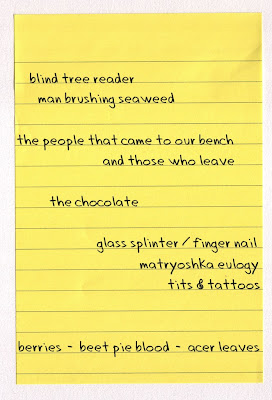 blind tree reader
man brushing seaweed
the people that came to our bench
and those who leave
the chocolate
glass splinter / finger nail
matryoshka eulogy
tits & tattoos
berries - beet pie blood - acer leaves